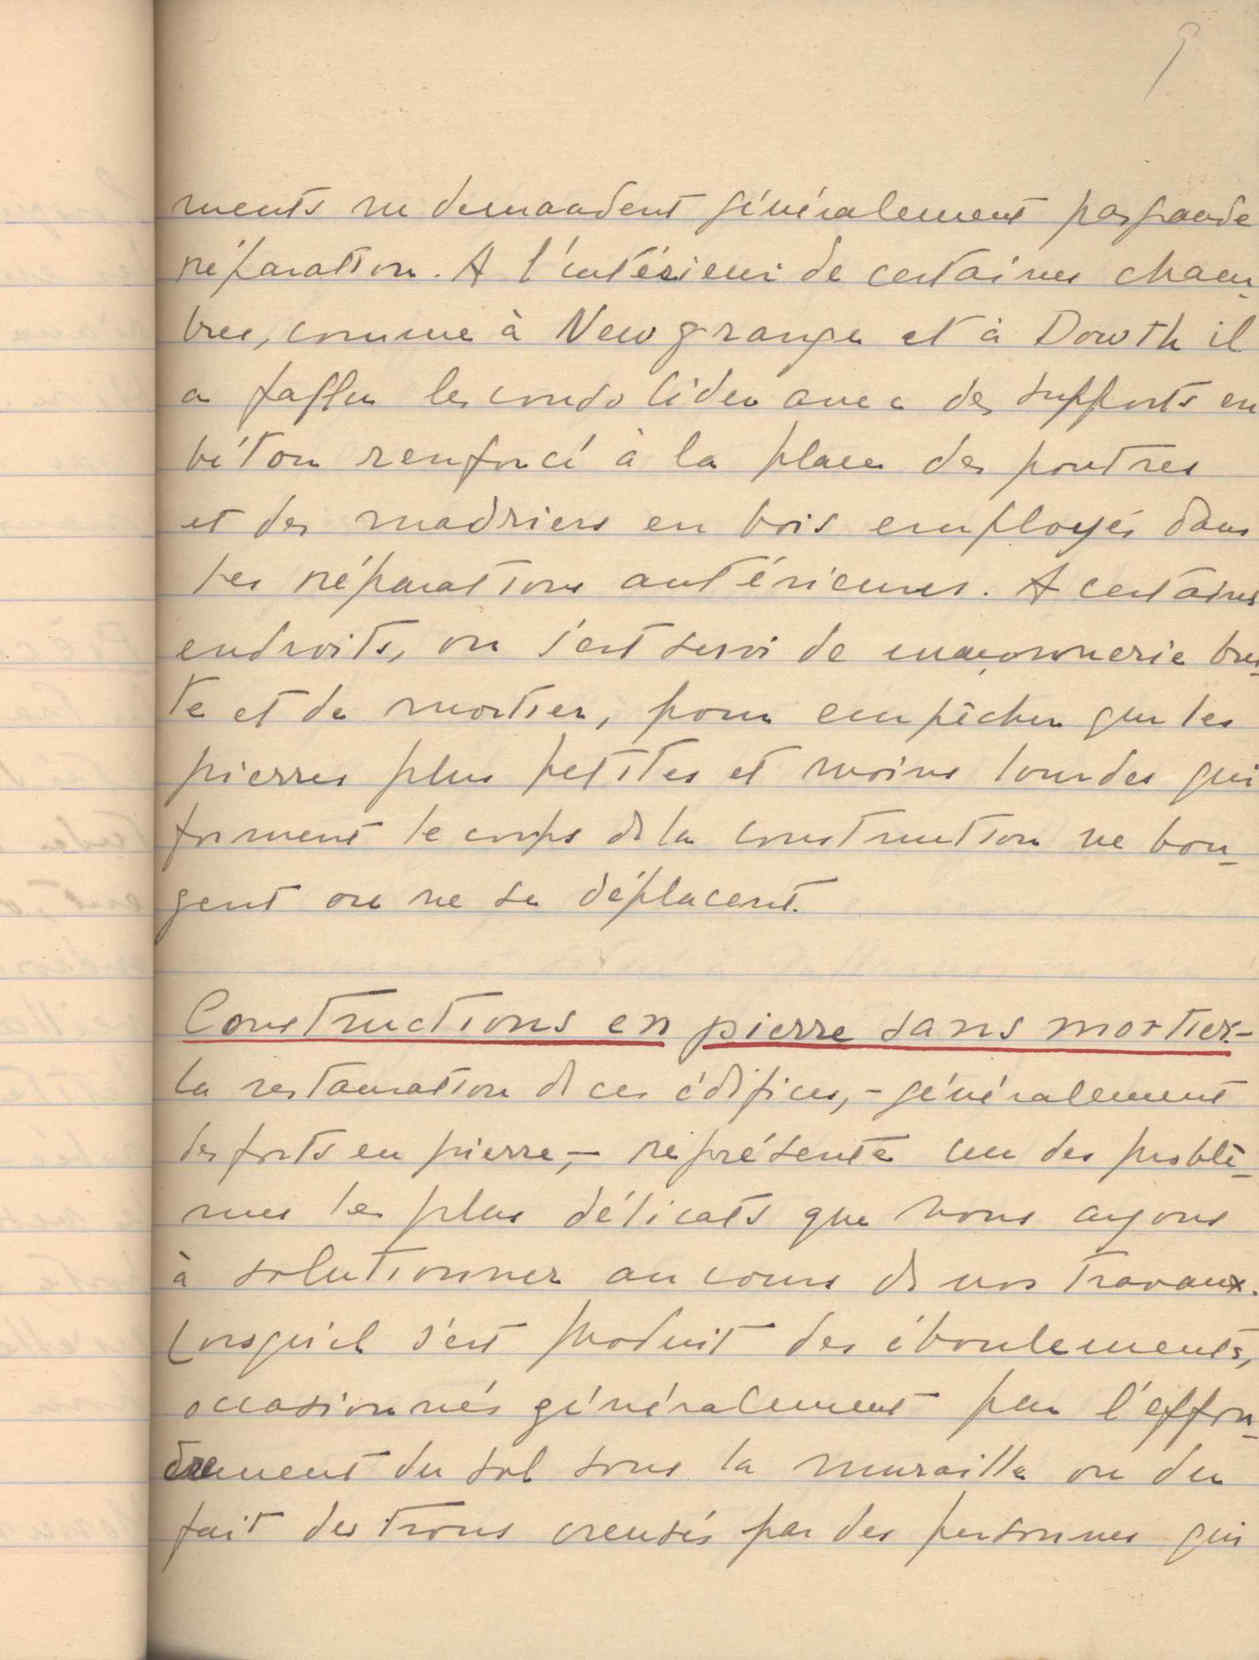 9
ments ne demandent généralement pas grande
réparation. A l'intérieur de certaines cham-
bres, comme à Newgrange et à Dowth il
a fallu les consolider avec des supports en
béton renforcé à la place des poutres
et des madriers en bois employés dans
les réparations antérieures. A certains
endroits, on s'est servi de maçonnerie bru-
te et de mortier, pour empêcher que les
pierres plus petites et moins lourdes qui
forment le corps de la construction ne bou-
gent ou ne se déplacent.
Constructions en pierre sans mortier-
la restauration de ces édifices, - généralement
des forts en pierre, - représente un des problè-
mes les plus délicats que nous ayons
à solutionner au cours de nos travaux.
Lorsqu'il s'est produit des éboulements,
occasionnés généralement par l'effon-
drement du sol sous la muraille ou du
fait des trous creusés par des personnes qui